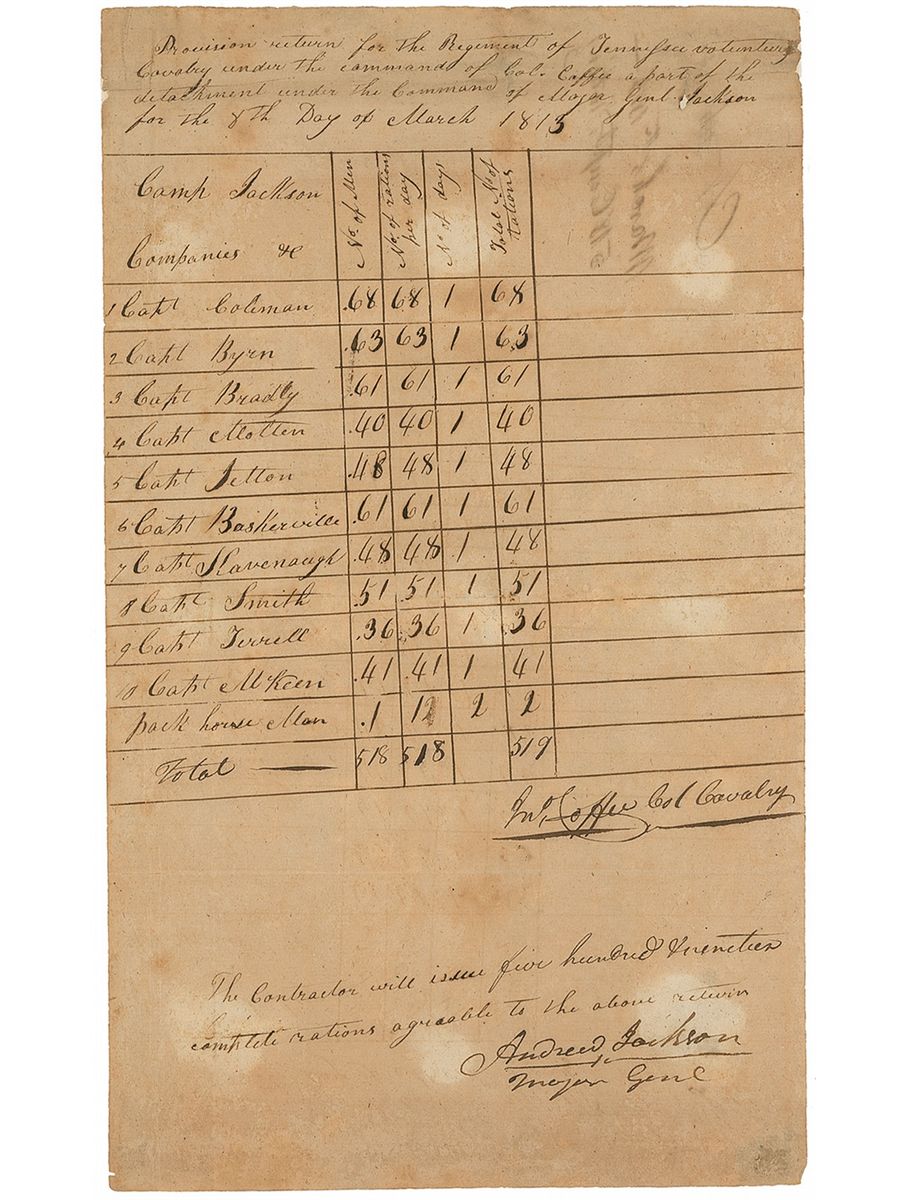 Provision return for the Regiment of Tennessee volunteers
Cavalry under the command of Col. Coffee a part of the
detachment under the Command of Major Genl Jackson
for the 8th Day of March 1813
Camp Jackson
Companies &c
No. of Men
No. of rations per day
No of days
Total No of rations
1 Capt Coleman .68 68 1 68
2 Capt Byrn .63 63 1 63
3 Capt Bradly .61 61 1 61
4 Capt Molten .40 40 1 40
5 Capt Jetton .48 48 1 48
6 Capt Baskerville .61 61 1 61
7 Capt Kavenaugh .48 .48 1 48
8 Capt Smith .51 .51 1 51
9 Capt Terrell .36 .36 1 .36
10 Capt McKeen .41 .41 1 41
pack horse Man .1 1 2 2
Total 518 518 519
Jno. Coffee Col Cavalry
The Contractor will issue five hundred & nineteen
complete rations agreeable to the above return
Andrew Jackson
Major Genl